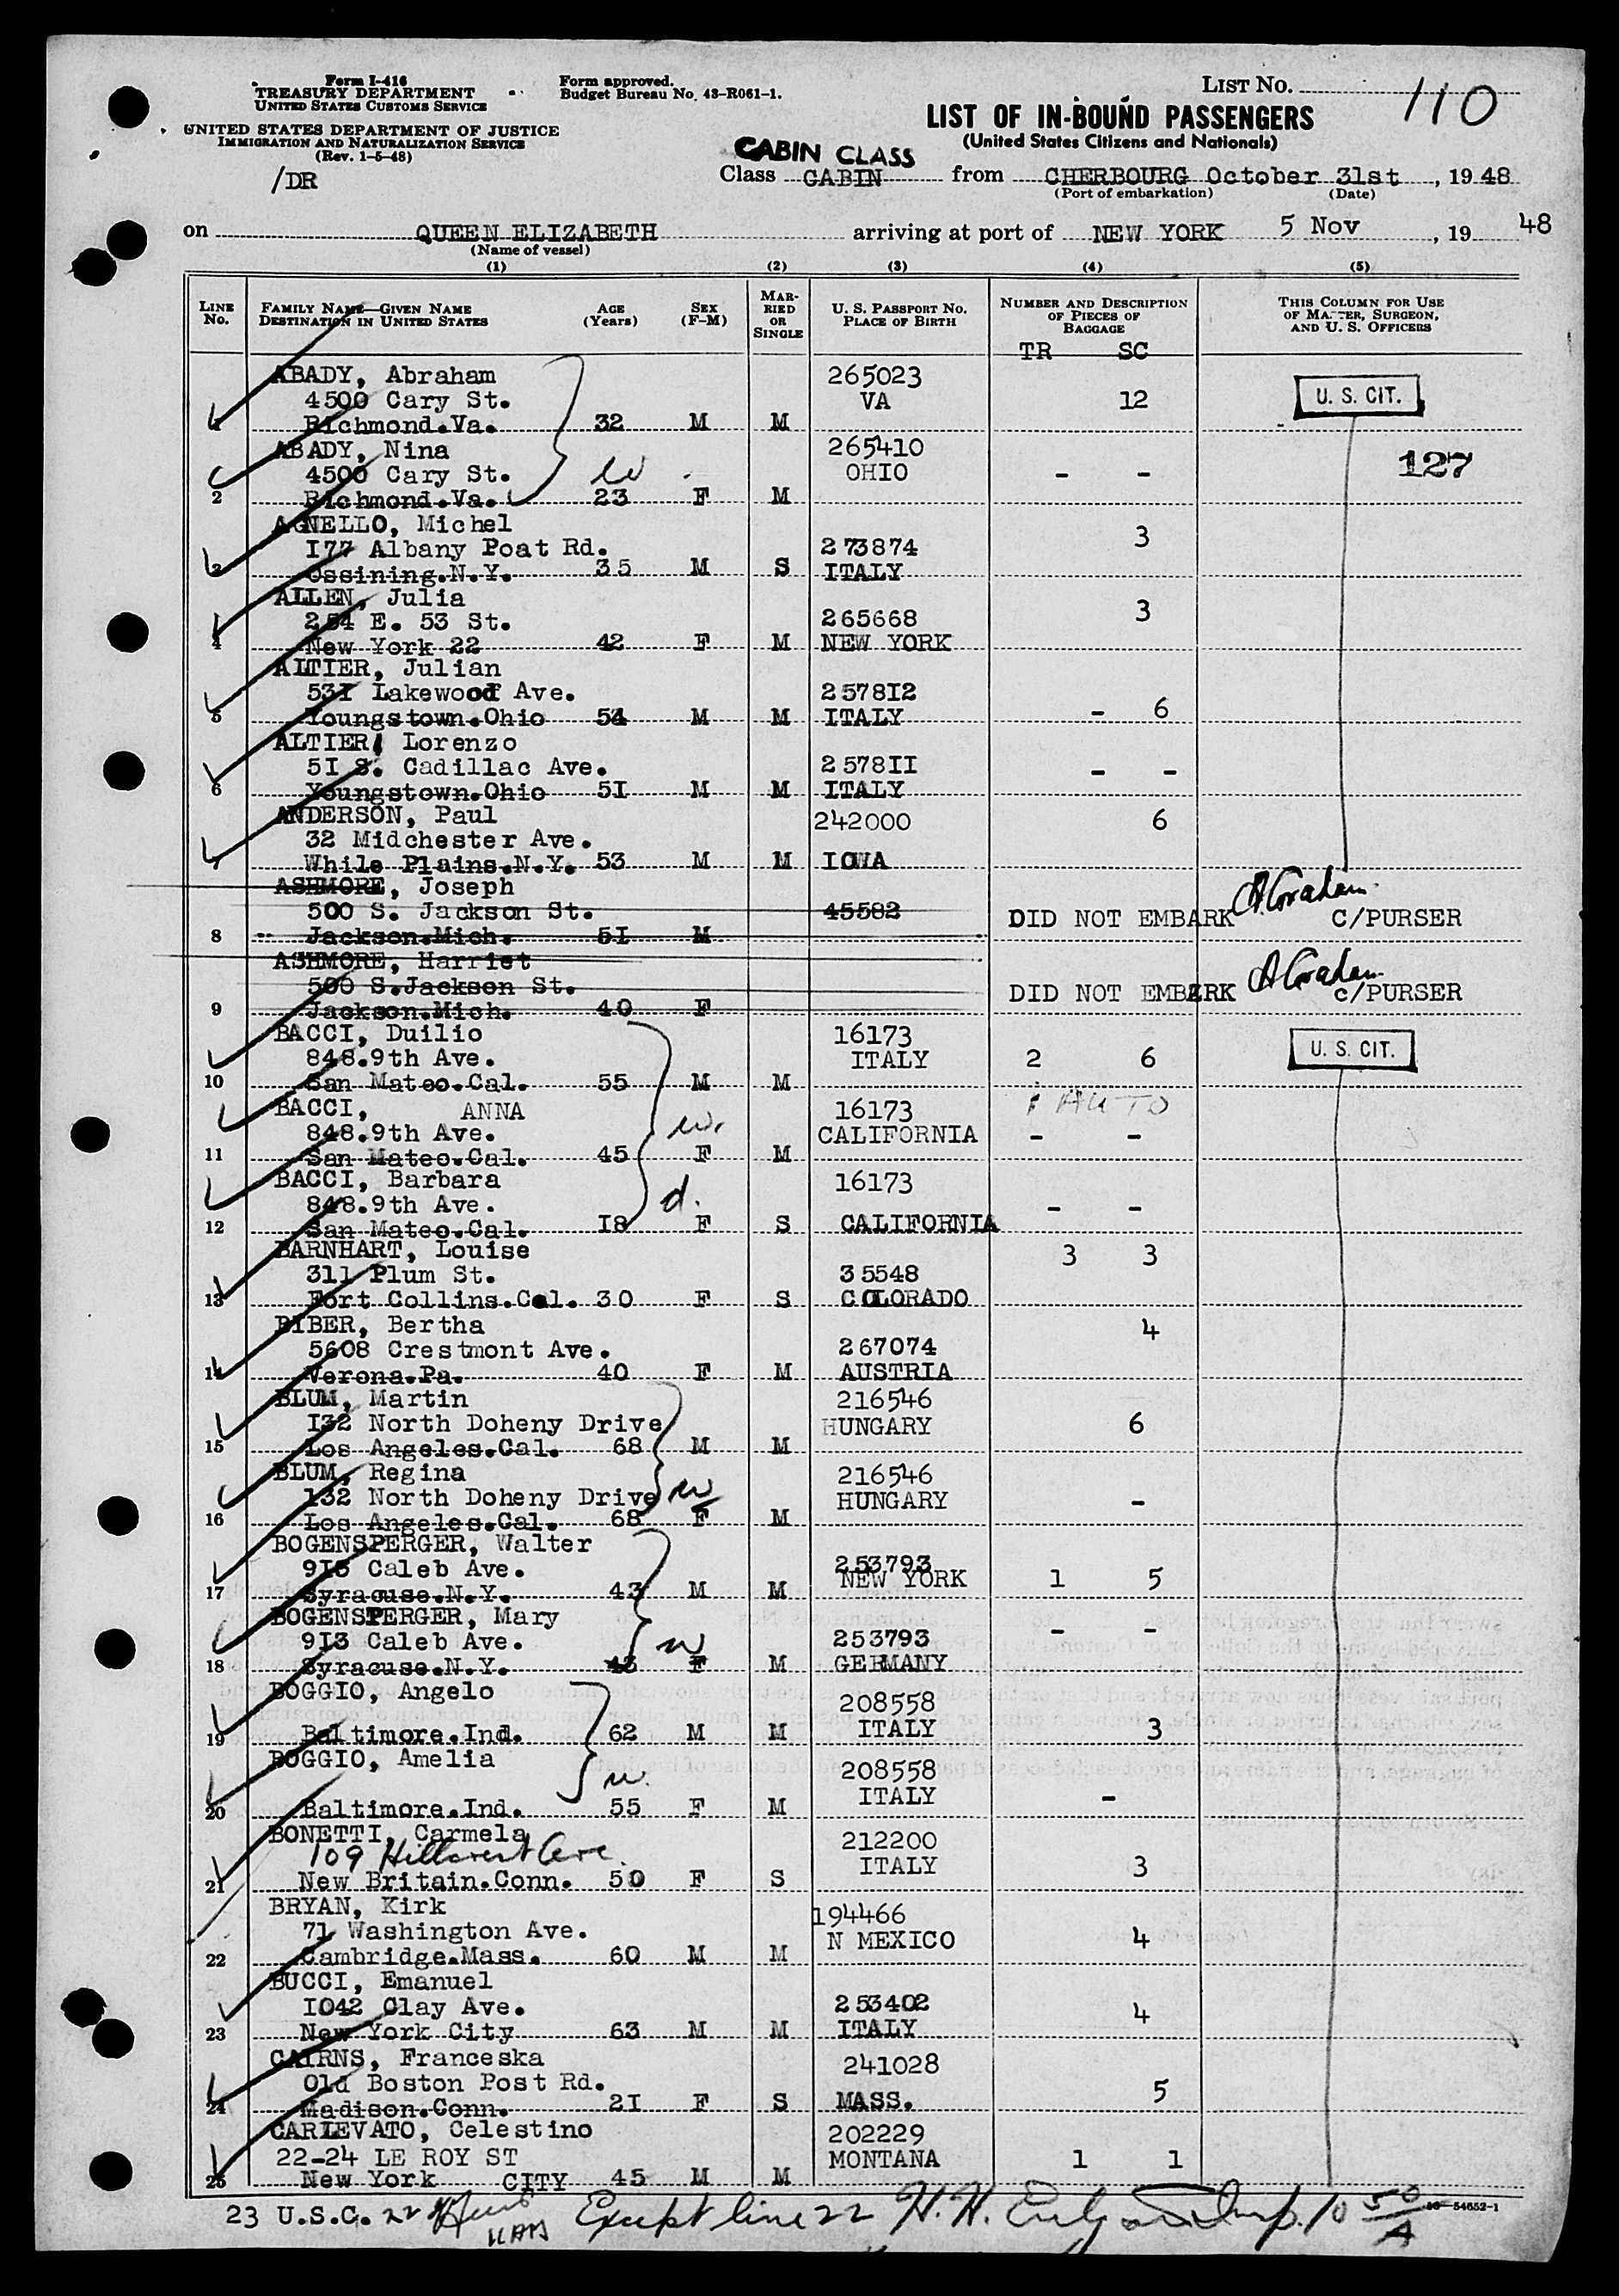 Form I-416
TREASURY DEPARTMENT
UNITED STATES CUSTOMS SERVICE
UNITED STATES DEPARTMENT OF JUSTICE
IMMIGRATION AND NATURALIZATION SERVICE
(Rev. 1-5-48)
/DR
Form approved.
Budget Bureau No. 43-R061-1.
LIST NO. 110
LIST OF IN-BOUND PASSENGERS
(United States Citizens and Nationals)
CABIN CLASS
Class CABIN from CHERBOURG October 31st, 19 48
(Port of embarkation) (Date)
on QUEEN ELIZABETH arriving at port of NEW YORK 5 Nov, 19 48
(Name of vessel)
(1) (2) (3) (4) (5)
LINE No. FAMILY NAME—GIVEN NAME DESTINATION IN UNITED STATES AGE (Years) SEX (F-M) MARRIED OR SINGLE U. S. PASSPORT NO. PLACE OF BIRTH NUMBER AND DESCRIPTION OF PIECES OF BAGGAGE THIS COLUMN FOR USE OF MASTER, SURGEON, AND U. S. OFFICERS
TR SC
ABADY, Abraham 265023
4500 Cary St. VA 12 U. S. CIT.
1 Richmond.Va. 32 M M
ABADY, Nina 265410
4500 Cary St. w OHIO - - 127
2 Richmond.Va. 23 F M
AGNELLO, Michel 3
I77 Albany Poat Rd. 273874
3 Ossining.N.Y. 35 M S ITALY
ALLEN, Julia 3
254 E. 53 St. 265668
4 New York 22 42 F M NEW YORK
ALTIER, Julian
53I Lakewood Ave. 2578I2
5 Youngstown.Ohio 54 M M ITALY - 6
ALTIER, Lorenzo
5I S. Cadillac Ave. 2578II - -
6 Youngstown.Ohio 5I M M ITALY
ANDERSON, Paul 242000 6
32 Midchester Ave.
7 While Plains.N.Y. 53 M M IOWA
ASHMORE, Joseph
500 S. Jackson St. 45582 DID NOT EMBARK A Graham C/PURSER
8 Jackson.Mich. 5I M
ASHMORE, Harriet
500 S.Jackson St. DID NOT EMBARK A Graham C/PURSER
9 Jackson.Mich. 40 F
BACCI, Duilio 16173
848.9th Ave. ITALY 2 6 U. S. CIT.
10 San Mateo.Cal. 55 M M
BACCI, ANNA 16173 1 AUTO
848.9th Ave. w. CALIFORNIA - -
11 San Mateo.Cal. 45 F M
BACCI, Barbara 16173
848.9th Ave. d. - -
12 San Mateo.Cal. I8 F S CALIFORNIA
BARNHART, Louise 3 3
311 Plum St. 35548
13 Fort Collins.Col. 30 F S COLORADO
BIBER, Bertha 4
5608 Crestmont Ave. 267074
14 Verona.Pa. 40 F M AUSTRIA
BLUM, Martin 216546
I32 North Doheny Drive HUNGARY 6
15 Los Angeles.Cal. 68 M M
BLUM, Regina 216546
132 North Doheny Drive w HUNGARY -
16 Los Angeles.Cal. 68 F M
BOGENSPERGER, Walter
9I3 Caleb Ave. 253793
17 Syracuse.N.Y. 43 M M NEW YORK 1 5
BOGENSPERGER, Mary - -
9I3 Caleb Ave. w 253793
18 Syracuse.N.Y. 43 F M GERMANY
BOGGIO, Angelo 208558
19 Baltimore.Ind. 62 M M ITALY 3
BOGGIO, Amelia w. 208558
ITALY -
20 Baltimore.Ind. 55 F M
BONETTI, Carmela 212200
109 Hillcrest Ave. ITALY 3
21 New Britain.Conn. 50 F S
BRYAN, Kirk 194466
71 Washington Ave. N MEXICO 4
22 Cambridge.Mass. 60 M M
BUCCI, Emanuel
I042 Clay Ave. 253402 4
23 New York City 63 M M ITALY
CAIRNS, Franceska 241028
Old Boston Post Rd. 5
24 Madison.Conn. 2I F S MASS.
CARLEVATO, Celestino 202229
22-24 LE ROY ST MONTANA 1 1
25 New York CITY 45 M M
23 U.S.C. 22 Except line 22 H. H. Insp. 10 50/A 16—54652-1